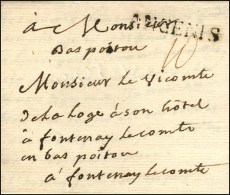 à Monsieur
ANCENIS
Bas poitou
10
Monsieur le Vicomte
de la loge à son hôtel
à fontenay le comte
en bas poitou
à fontenay le comte